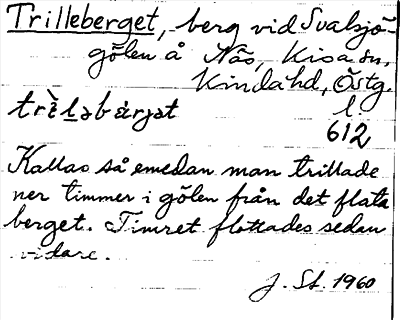 Trilleberget, berg vid Svalsjö-
gölen å Näs, Kisa sn,
Kinda hd, Östg.
l.
trὲləbærjət
612
Kallas så emedan man trillade
ner timmer i gölen från det flata
berget. Timret flottades sedan
vidare.
J. St. 1960